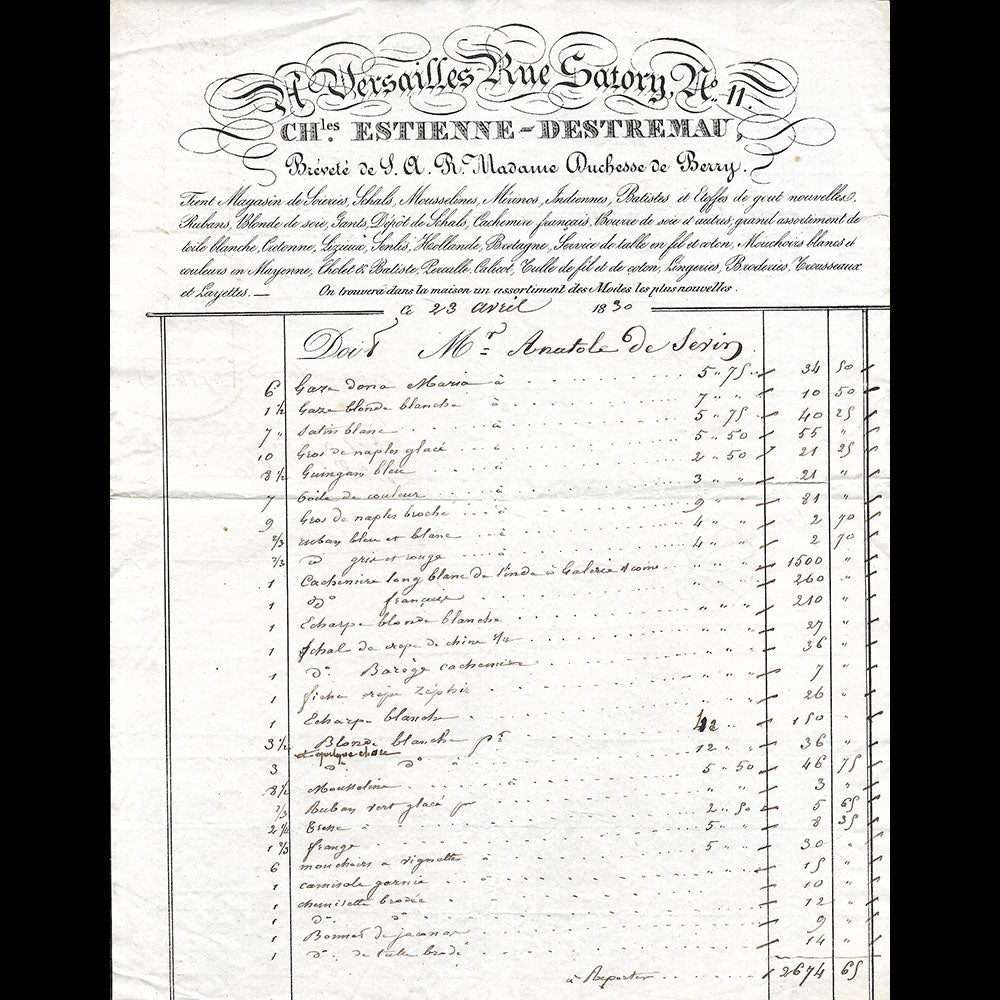 A Versailles Rue Satory, No. 11.
CHles. ESTIENNE-DESTREMAU,
Bréveté de S. A. R. Madame Duchesse de Berry.
Tient Magasin de Soieries, Schals, Mousselines, Mérinos, Indiennes, Batistes et Etoffes de gout nouvelles,
Rubans, Blonde de soie, Gants, Dépôt de Schals, Cachemire français, Bourre de soie et autres, grand assortement de
toile blanche, Cretonne, Lizieux, Senlis, Hollande, Bretagne, Service de table en fil et coton, Mouchoirs blancs et
couleurs en Mayenne, Cholet & Batiste, Percalle, Calicot, Tulle de fil et de coton, Lingeries, Broderies, Trousseaux
et Layettes. — On trouvera dans la maison un assortiment des Modes les plus nouvelles.
Ce 23 avril 1830
Doit Mr. Anatole de Serin
6 Gaze dona Maria à 5 " 75 34 50
1 1/2 Gaze blonde blanche à 7 " " 10 50
7 " Satin blanc à 5 " 75 40 25
10 Gros de naples glacé à 5 " 50 55 "
8 1/2 Guingan bleu à 2 " 50 21 25
7 toile de couleur à 3 " " 21 "
9 Gros de naples broche à 9 " " 81 "
2/3 ruban bleu et blanc à 4 " " 2 70
2/3 do gris et rouge à 4 " " 2 70
1 Cachemire long blanc de l'inde à Galerie 1500 "
1 do français 260 "
1 Echarpe blonde blanche 210 "
1 Schal de crepe de chine 5/4 27 "
1 do. Barège cachemire 36 "
1 fichu crepe Zéphir 7 "
1 Echarpe blanche 26 "
3 1/2 Blonde blanche pr 42 150 "
et quelque chose
3 do do à 12 " " 36 "
8 1/2 Mousseline à 5 " 50 46 75
2/3 Ruban vert glacé pr " " 3 "
2 1/4 à 2 " 50 5 65
1 2/3 frange 5 " " 8 35
6 mouchoirs a vignettes à 5 " " 30 "
1 camisole garnie 15 "
1 chemisette brodée 10 "
1 do. do 12 "
1 Bonnet de jaconas 9 "
1 do. de tulle brodé 14 "
à Reporter 2674 65